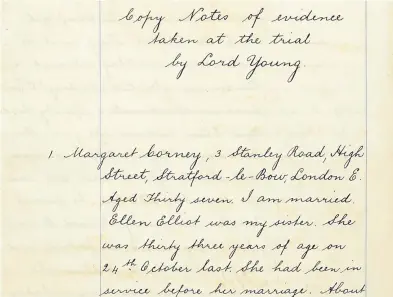 Copy Notes of evidence
taken at the trial
by Lord Young.
1. Margaret Corney, 3 Stanley Road, High
Street, Stratford-le-Bow, London E.
Aged Thirty seven. I am married.
Ellen Elliot was my sister. She
was thirty three years of age on
24th October last. She had been in
service before her marriage. About